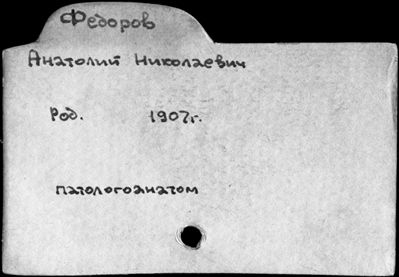 Федоров
Анатолий Николаевич
Род. 1907г.
патологоанатом